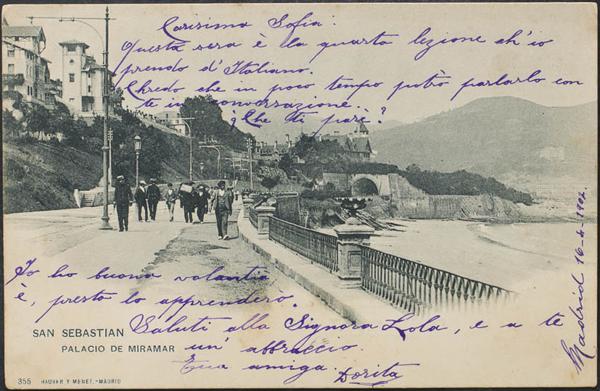 Carissima Sofia:
Questa sera è la quarta lezione ch'io
prendo d'Italiano.
Chredo che in poco tempo potrò parlarlo con
te in conversazione.
¿Che ti pare?
Io ho buona volontia
è, presto lo apprendero.
Saluti alla Signora Lola, e a te
un' abbraccio
Tua amiga.
Dorita
Madrid 16-6-1902
SAN SEBASTIAN
PALACIO DE MIRAMAR
355 HAUSER Y MENET.-MADRID